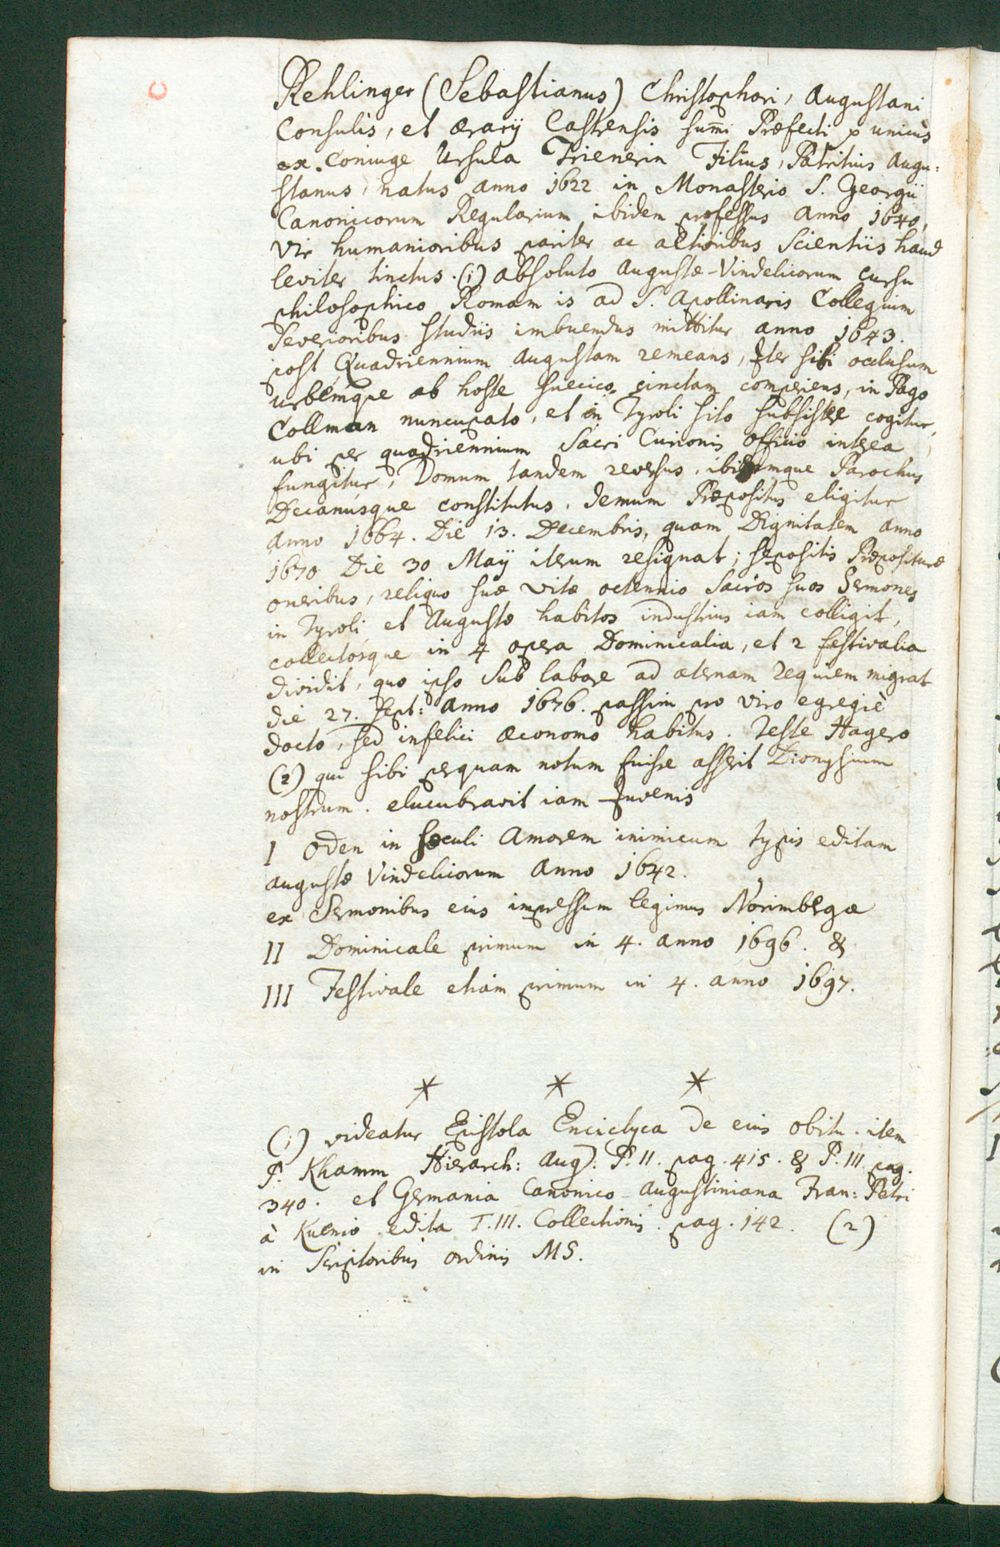 Rehlinger (Sebastianus) Christophori, Augustani
Consulis, et ærarij Castrensis sum̃i Præfecti ex unicus
ex Coniuge Ursula Trienerin Filius, Patritius Augu-
stanus, natus anno 1622 in Monasterio S. Georgii
Canonicorum Regularium ibidem professus anno 1640,
Vir humanioribus pariter ac altioribus Scientiis haud
leviter tinctus. (1) absoluto Augustæ-Vindelicorum Cursu
philosophico Romam is ad S. Apollinaris Collegium
severioribus studiis imbuendus mittitur anno 1643.
post Quadriennium Augustam remeans, Iter sibi occlusum
urbemque ab hoste Suecico cinctam comperiens, in Pago
Collman nuncupato, et in Tyroli sito subsistere cogitur,
ubi per quadriennium Sacri Curionis officio interea
fungitur, Domum tandem reversus, ibidemque Parochus
Decanusque constitutus, demum Præpositus eligitur
anno 1664. Die 13. Decembris, quam Dignitatem anno
1670 Die 30 Maij iterum resignat; sepositis Præposituræ
oneribus, reliquo suæ vitæ octennio Sacros suos Sermones
in Tyroli et Augustæ habitos industrius iam colligit,
collectosque in 4 opera Dominicalia, et 2 festivalia
dividit, quo ipso sub labore ad æternam requiem migrat
die 27. Sept: anno 1676. passim pro viro egregiè
docto, sed infelici æconomo habitus. Teste Hagero
(2) qui sibi perquam notum fuisse asserit Dionysium
nostrum. elucubravit iam Iuvenis
I Oden in sæculi Amorem inimicum typis editam
Augustæ Vindelicorum Anno 1642.
ex Sermonibus eius impressum legimus Norimbergæ
II Dominicale primum in 4. anno 1696. &
III Festivale etiam primum in 4. anno 1697.
* * *
(1) videatur Epistola Enciclyca de eius obitu. item
P. Khamm Hierarch: Aug: P. II. pag. 415. & P. III. pag.
340. et Germania Canonico-Augustiniana Fran: Petri
à Kuenio edita T. III. Collectionis. pag. 142. (2)
in Scriptoribus ordinis MS.